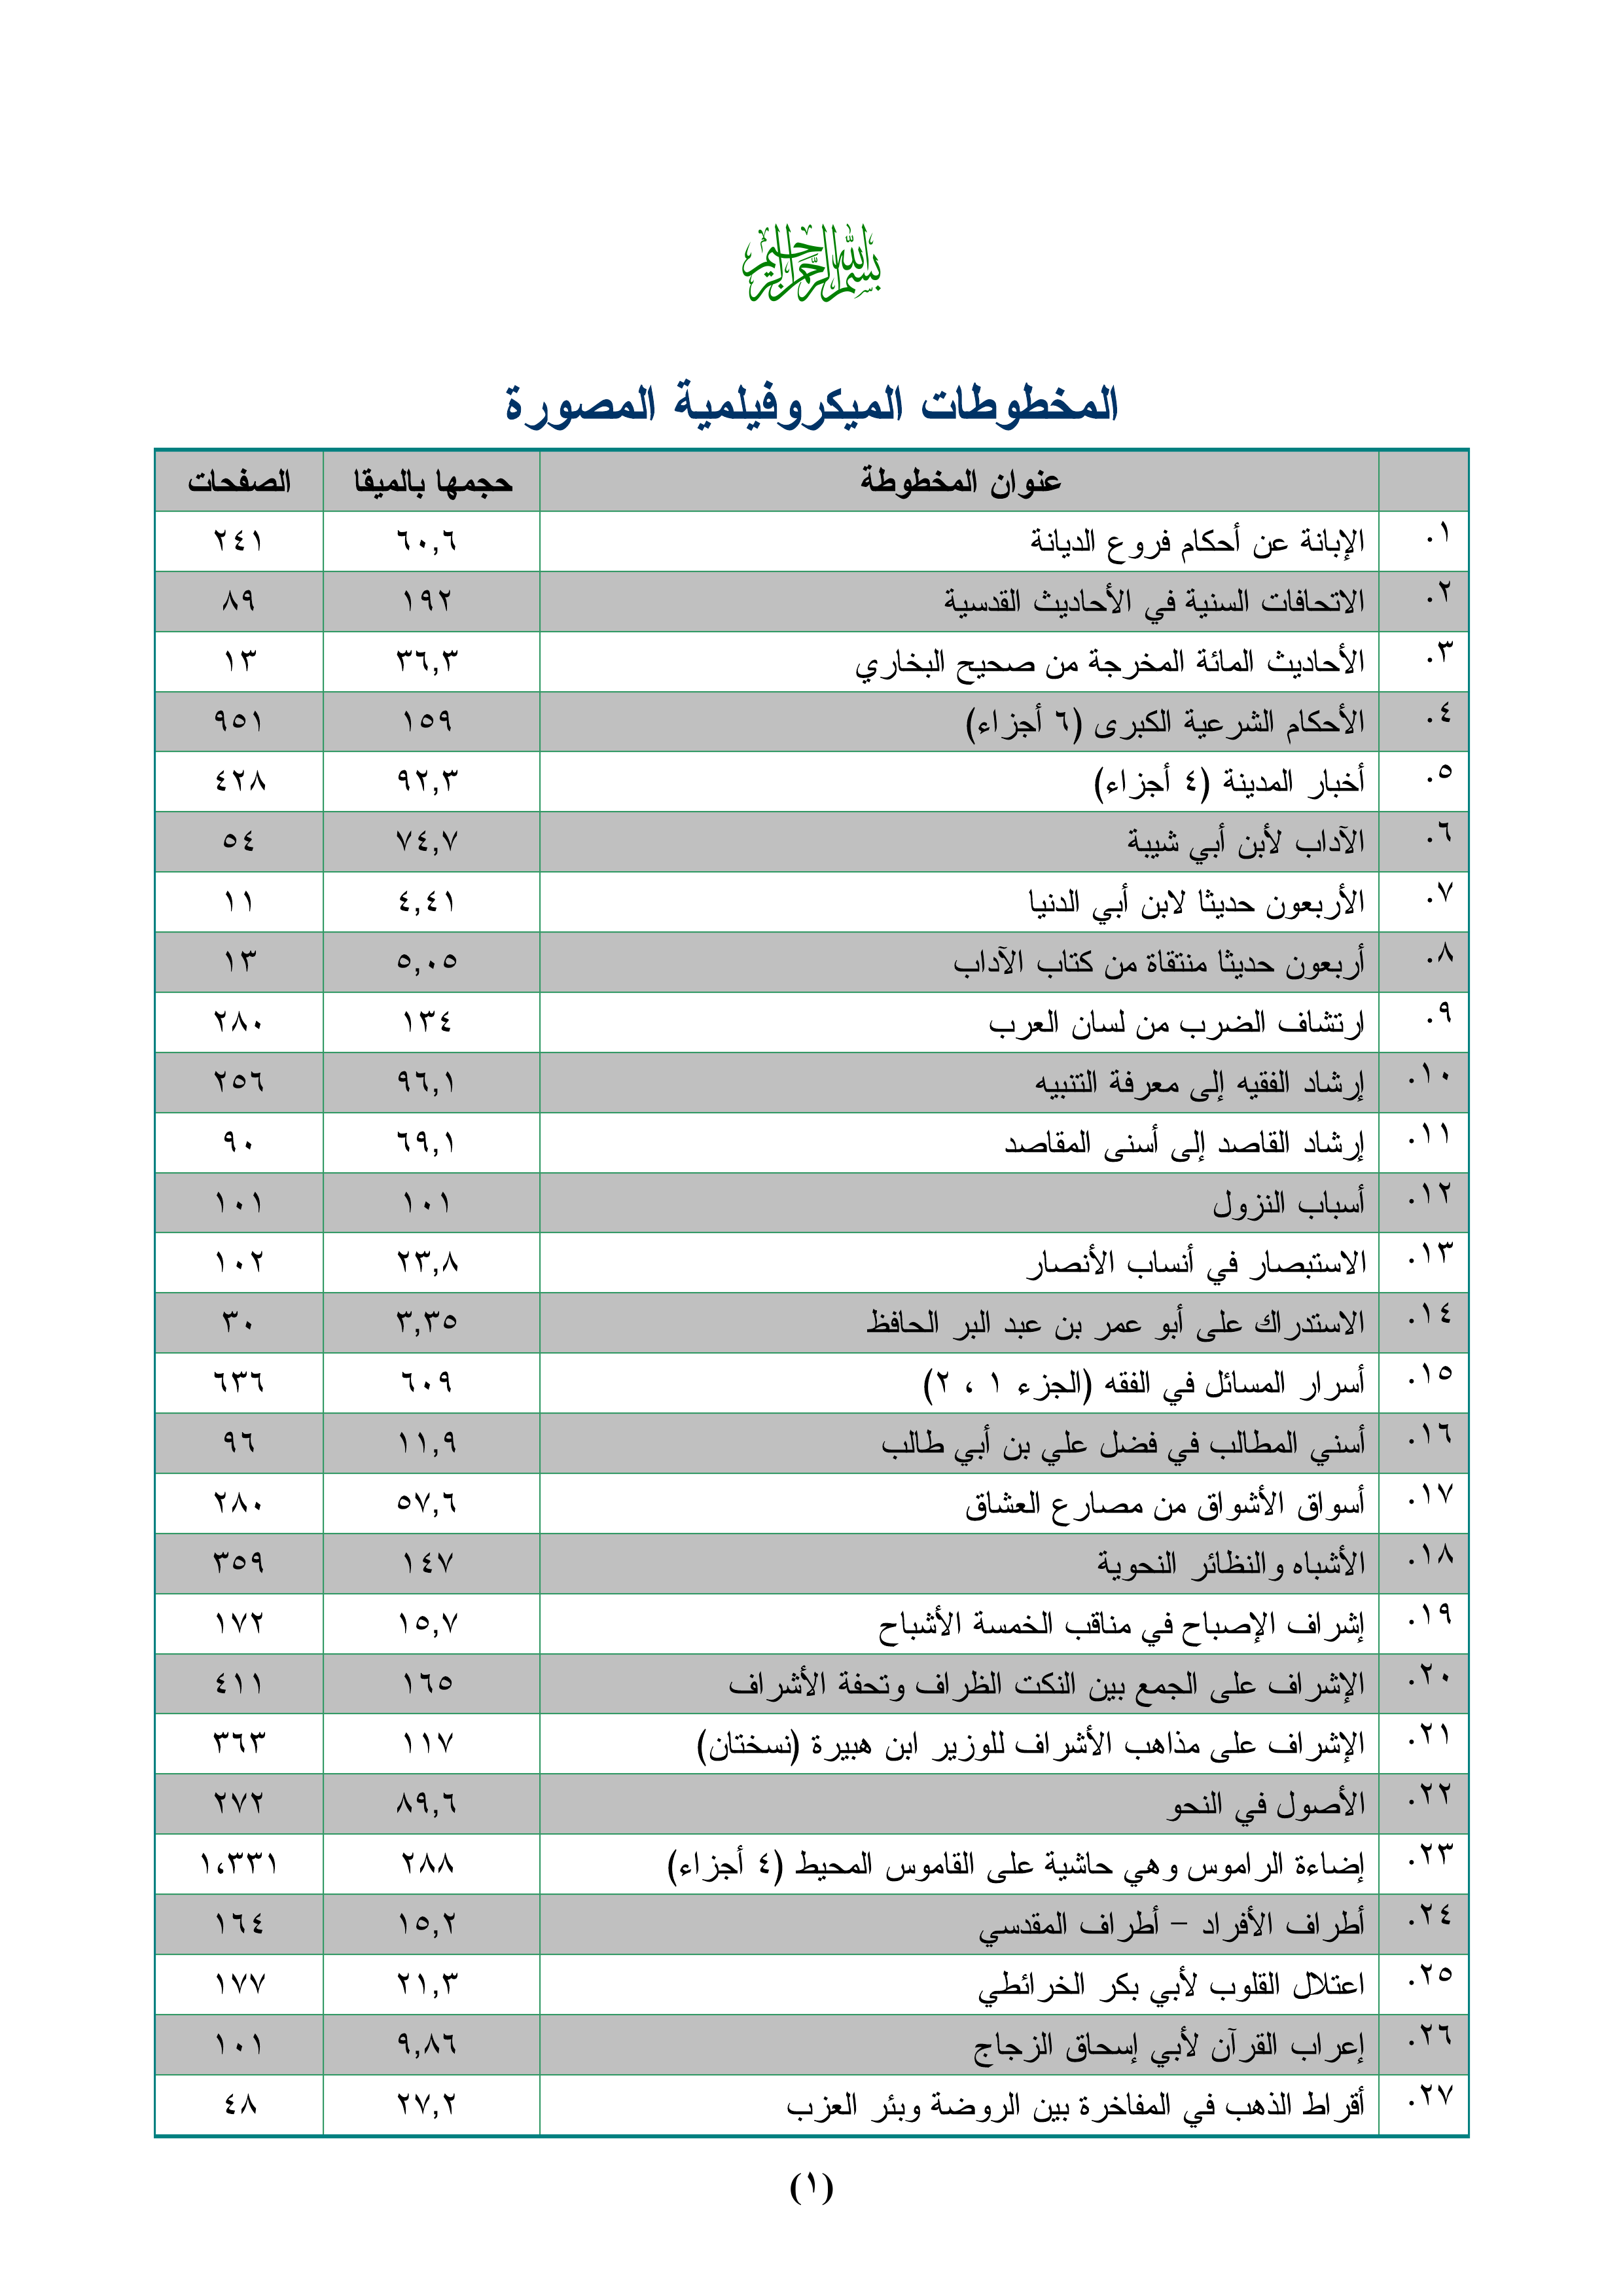 بسم الله الرحمن الرحيم
المخطوطات الميكروفيلمية المصورة
عنوان المخطوطة حجمها بالميقا الصفحات
١. الإبانة عن أحكام فروع الديانة ٦٠,٦ ٢٤١
٢. الاتحافات السنية في الأحاديث القدسية ١٩٢ ٨٩
٣. الأحاديث المائة المخرجة من صحيح البخاري ٣٦,٣ ١٣
٤. الأحكام الشرعية الكبرى (٦ أجزاء) ١٥٩ ٩٥١
٥. أخبار المدينة (٤ أجزاء) ٩٢,٣ ٤٢٨
٦. الآداب لأبن أبي شيبة ٧٤,٧ ٥٤
٧. الأربعون حديثا لابن أبي الدنيا ٤,٤١ ١١
٨. أربعون حديثا منتقاة من كتاب الآداب ٥,٠٥ ١٣
٩. ارتشاف الضرب من لسان العرب ١٣٤ ٢٨٠
١٠. إرشاد الفقيه إلى معرفة التنبيه ٩٦,١ ٢٥٦
١١. إرشاد القاصد إلى أسنى المقاصد ٦٩,١ ٩٠
١٢. أسباب النزول ١٠١ ١٠١
١٣. الاستبصار في أنساب الأنصار ٢٣,٨ ١٠٢
١٤. الاستدراك على أبو عمر بن عبد البر الحافظ ٣,٣٥ ٣٠
١٥. أسرار المسائل في الفقه (الجزء ١ ، ٢) ٦٠٩ ٦٣٦
١٦. أسني المطالب في فضل علي بن أبي طالب ١١,٩ ٩٦
١٧. أسواق الأشواق من مصارع العشاق ٥٧,٦ ٢٨٠
١٨. الأشباه والنظائر النحوية ١٤٧ ٣٥٩
١٩. إشراف الإصباح في مناقب الخمسة الأشباح ١٥,٧ ١٧٢
٢٠. الإشراف على الجمع بين النكت الظراف وتحفة الأشراف ١٦٥ ٤١١
٢١. الإشراف على مذاهب الأشراف للوزير ابن هبيرة (نسختان) ١١٧ ٣٦٣
٢٢. الأصول في النحو ٨٩,٦ ٢٧٢
٢٣. إضاءة الراموس وهي حاشية على القاموس المحيط (٤ أجزاء) ٢٨٨ ١،٣٣١
٢٤. أطراف الأفراد – أطراف المقدسي ١٥,٢ ١٦٤
٢٥. اعتلال القلوب لأبي بكر الخرائطي ٢١,٣ ١٧٧
٢٦. إعراب القرآن لأبي إسحاق الزجاج ٩,٨٦ ١٠١
٢٧. أقراط الذهب في المفاخرة بين الروضة وبئر العزب ٢٧,٢ ٤٨
(١)